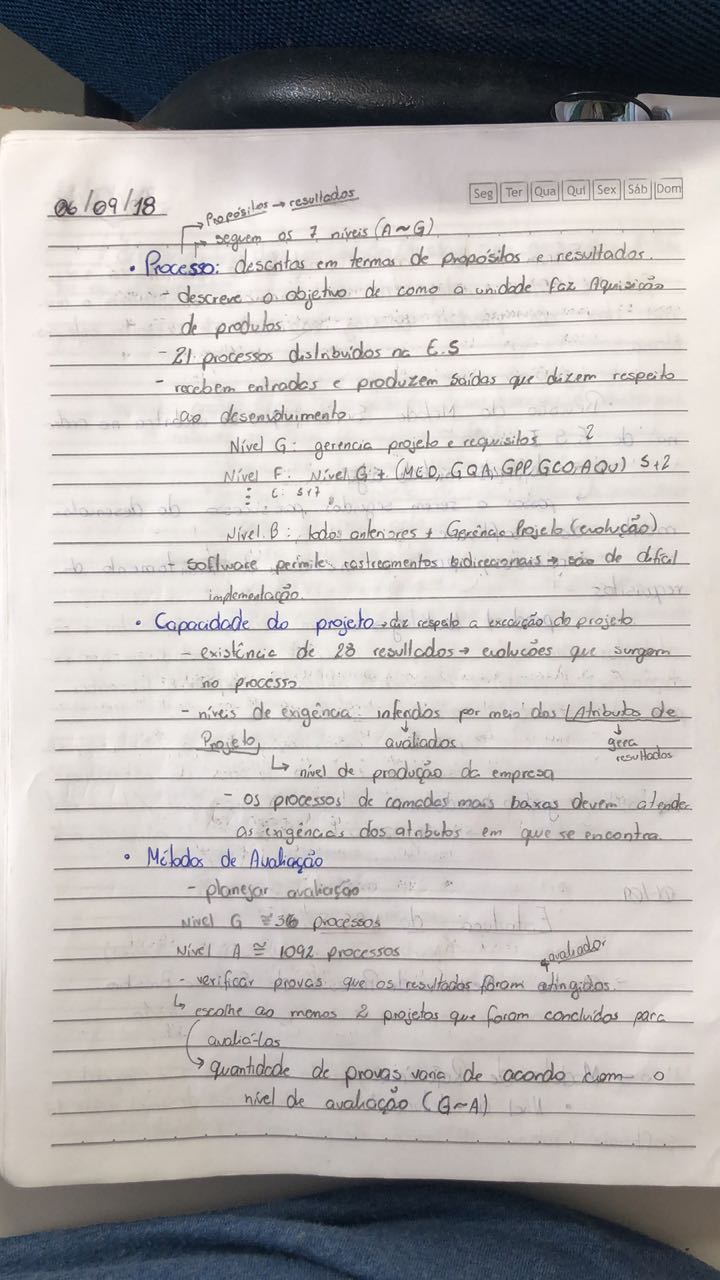 06/09/18
Seg Ter Qua Qui Sex Sáb Dom
Propósitos → resultados
→ seguem os 7 níveis (A~G)
• Processo: descritas em termas de propósitos e resultados.
- descreve o objetivo de como a unidade faz Aquisição
de produtos
- 21 processos distribuídos na E.S
- recebem entradas e produzem saídas que dizem respeito
ao desenvolvimento.
Nível G: gerencia projeto e requisitos 2
Nível F: Nível G + (MED, GQA, GPP, GCO, AQU) 5+2
⋮ C: 5+7
Nível B: todos anteriores + Gerência Projeto (evolução)
- Software permite rastreamentos bidirecionais → são de difícil
implementação.
• Capacidade do projeto → diz respeito a execução do projeto
- existência de 23 resultados → evoluções que surgem
no processo
- níveis de exigência: inferidos por meio dos Atributos de
Projeto, avaliados gera
resultados
↳ nível de produção da empresa
- os processos de camadas mais baixas devem atender
as exigências dos atributos em que se encontra.
• Métodos de Avaliação
- planejar avaliação
Nível G ≅ processos
Nível A ≅ 1092 processos
avaliador
- verificar provas que os resultados foram atingidos.
↳ escolhe ao menos 2 projetos que foram concluídos para
avalia-los
→ quantidade de provas varia de acordo com o
nível de avaliação (G~A)